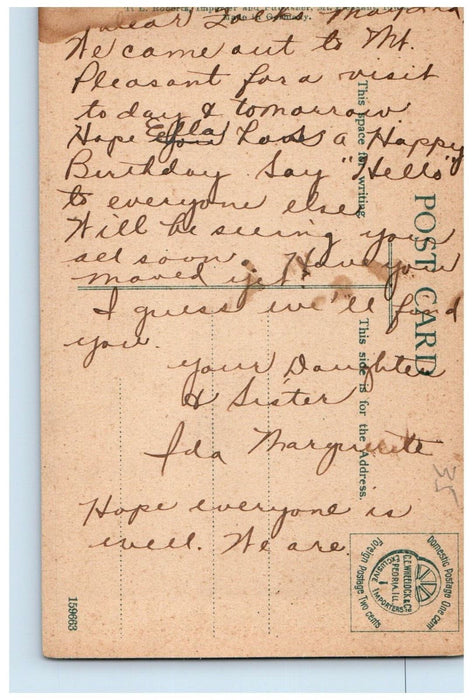 Dear Folks,
We came out to Mt.
Pleasant for a visit
today & tomorrow.
Hope Ella has a Happy
Birthday. Say "Hello"
to everyone else
Will be seeing you
all soon. Have you
moved yet?
I guess we'll find
you.
your Daughter
& Sister
Ida Marguerite
Hope everyone is
well. We are.
Made in Germany.
This space for writing
POST CARD
This side is for the Address.
35
Domestic Postage One cent
Foreign Postage Two cents
C.E. WHEELOCK & CO.
PEORIA, ILL.
EXCLUSIVE IMPORTERS
159663